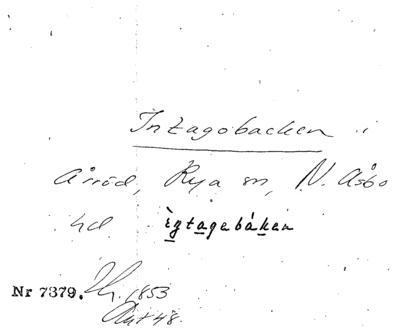 Intagobacken i
Årröd, Rya sn, N. Åsbo
hd. ìntagebáken
Nr 7379. 1853